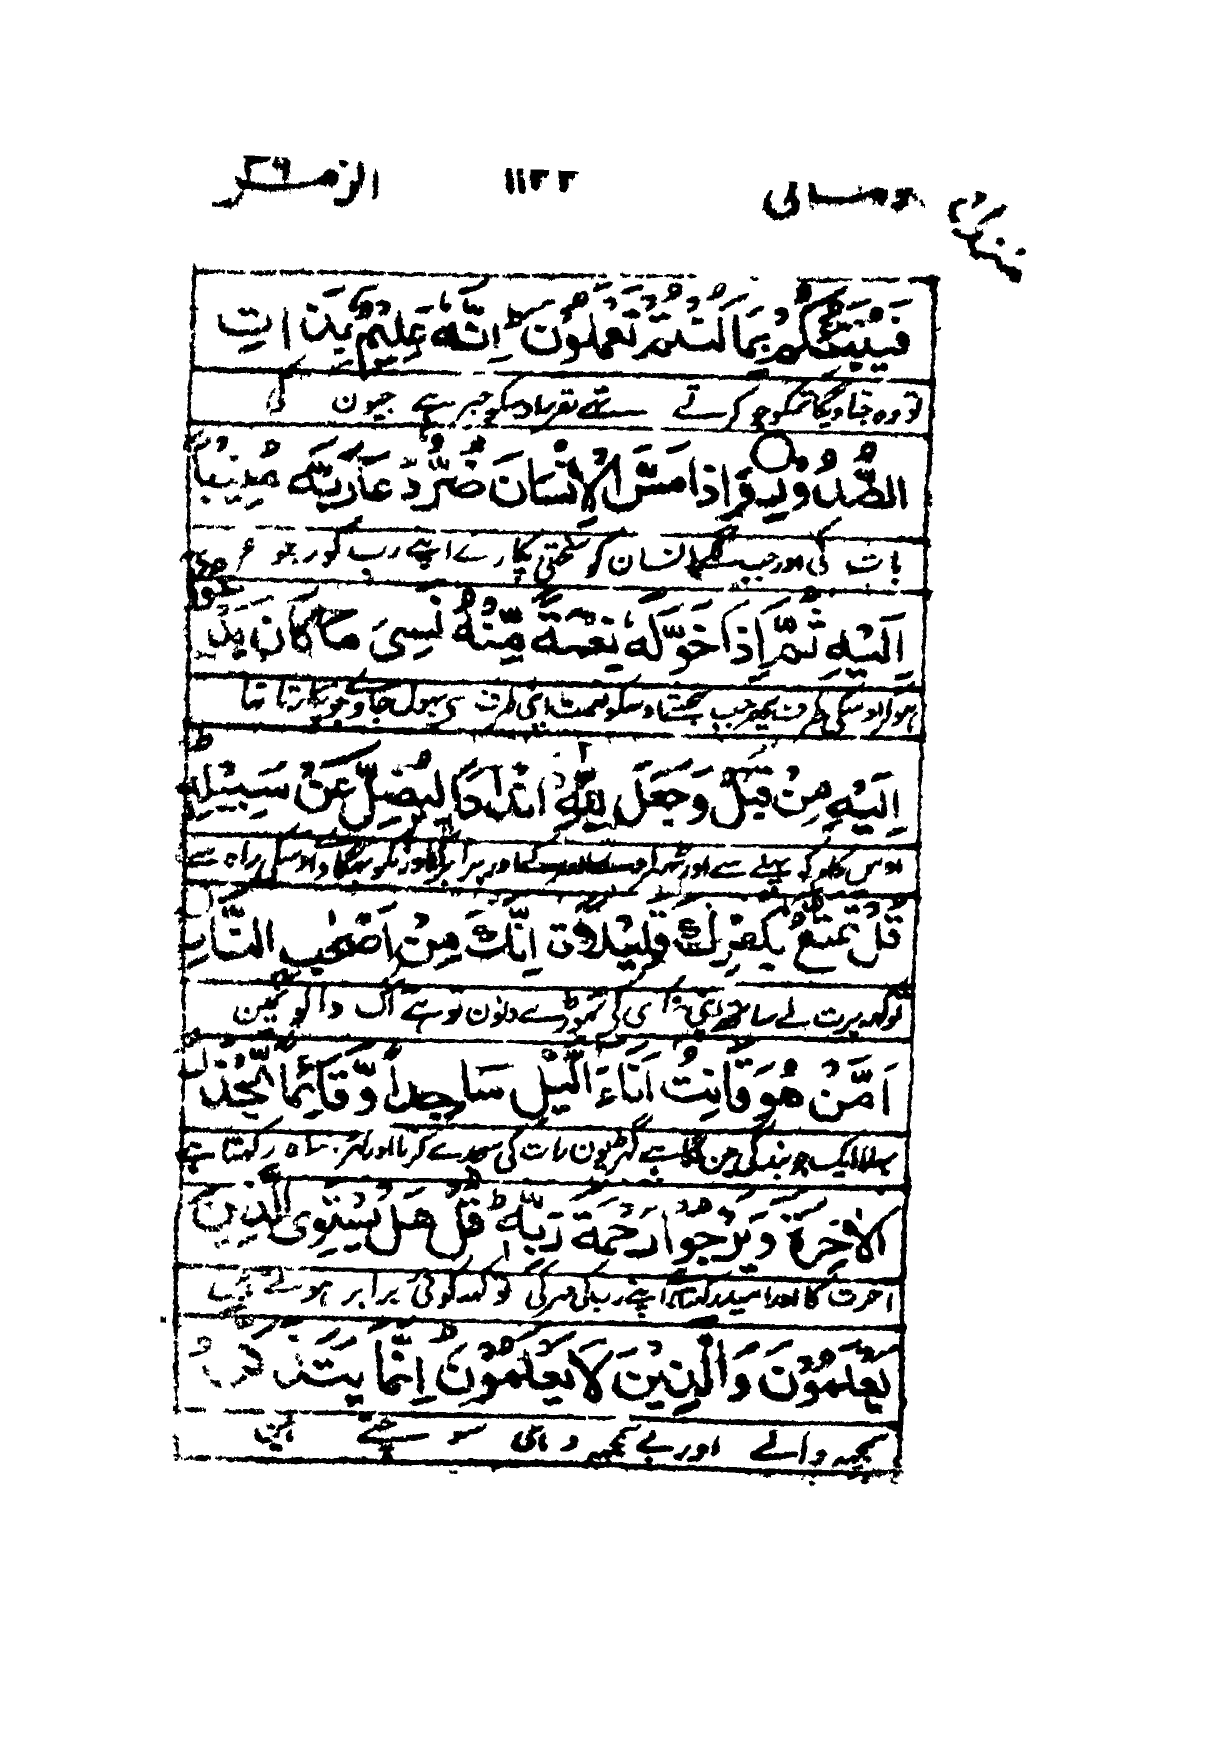 ومالی ۱۱۳۳ الزمر ۳۹
فَيُنَبِّئُكُمْ بِمَا كُنْتُمْ تَعْمَلُونَ ط اِنَّهٗ عَلِيْمٌۢ بِذَاتِ
تو وہ جتاویگا تمکو جو کرتے تھے مقرر اوسکو خبر ہے جیون کی
الصُّدُوْرِ وَاِذَا مَسَّ الْاِنْسَانَ ضُرٌّ دَعَا رَبَّهٗ مُنِيْبًا
بات کی اور جب لگے انسان کو سختی پکارے اپنے رب کو رجوع
اِلَيْهِ ثُمَّ اِذَا خَوَّلَهٗ نِعْمَةً مِّنْهُ نَسِيَ مَا كَانَ يَدْعُوْٓا
ہوکر اوسکی طرف پھر جب بخشے اوسکو نعمت اپنی طرف سی بھول جاوے جو پکارتا تھا
اِلَيْهِ مِنْ قَبْلُ وَجَعَلَ لِلّٰهِ اَنْدَادًا لِّيُضِلَّ عَنْ سَبِيْلِهٖ ط
اوس کام کو پہلے سے اور ٹھہراوے اللہ کے برابر اورونکو بہکاوے اوسکی راہ سے
قُلْ تَمَتَّعْ بِكُفْرِكَ قَلِيْلًا اِنَّكَ مِنْ اَصْحٰبِ النَّارِ
تو کہہ برت لے ساتھ اپنی کفر کی تھوڑے دنون تو ہے آگ والون مین
اَمَّنْ هُوَ قَانِتٌ اٰنَاءَ الَّيْلِ سَاجِدًا وَّقَائِمًا يَّحْذَرُ
بھلا ایک جو بندگی مین لگا ہے گھڑیون رات کی سجدے کرتا اور کھڑا رکھتا ہے
الْاٰخِرَةَ وَيَرْجُوْا رَحْمَةَ رَبِّهٖ ط قُلْ هَلْ يَسْتَوِى الَّذِيْنَ
آخرت کا اور امید رکھتا اپنے رب کی مہر کی تو کہہ کوئی برابر ہوتے ہین
يَعْلَمُوْنَ وَالَّذِيْنَ لَا يَعْلَمُوْنَ ط اِنَّمَا يَتَذَكَّرُ
سمجھہ والے اور بے سمجھہ وہی سوچتے ہین